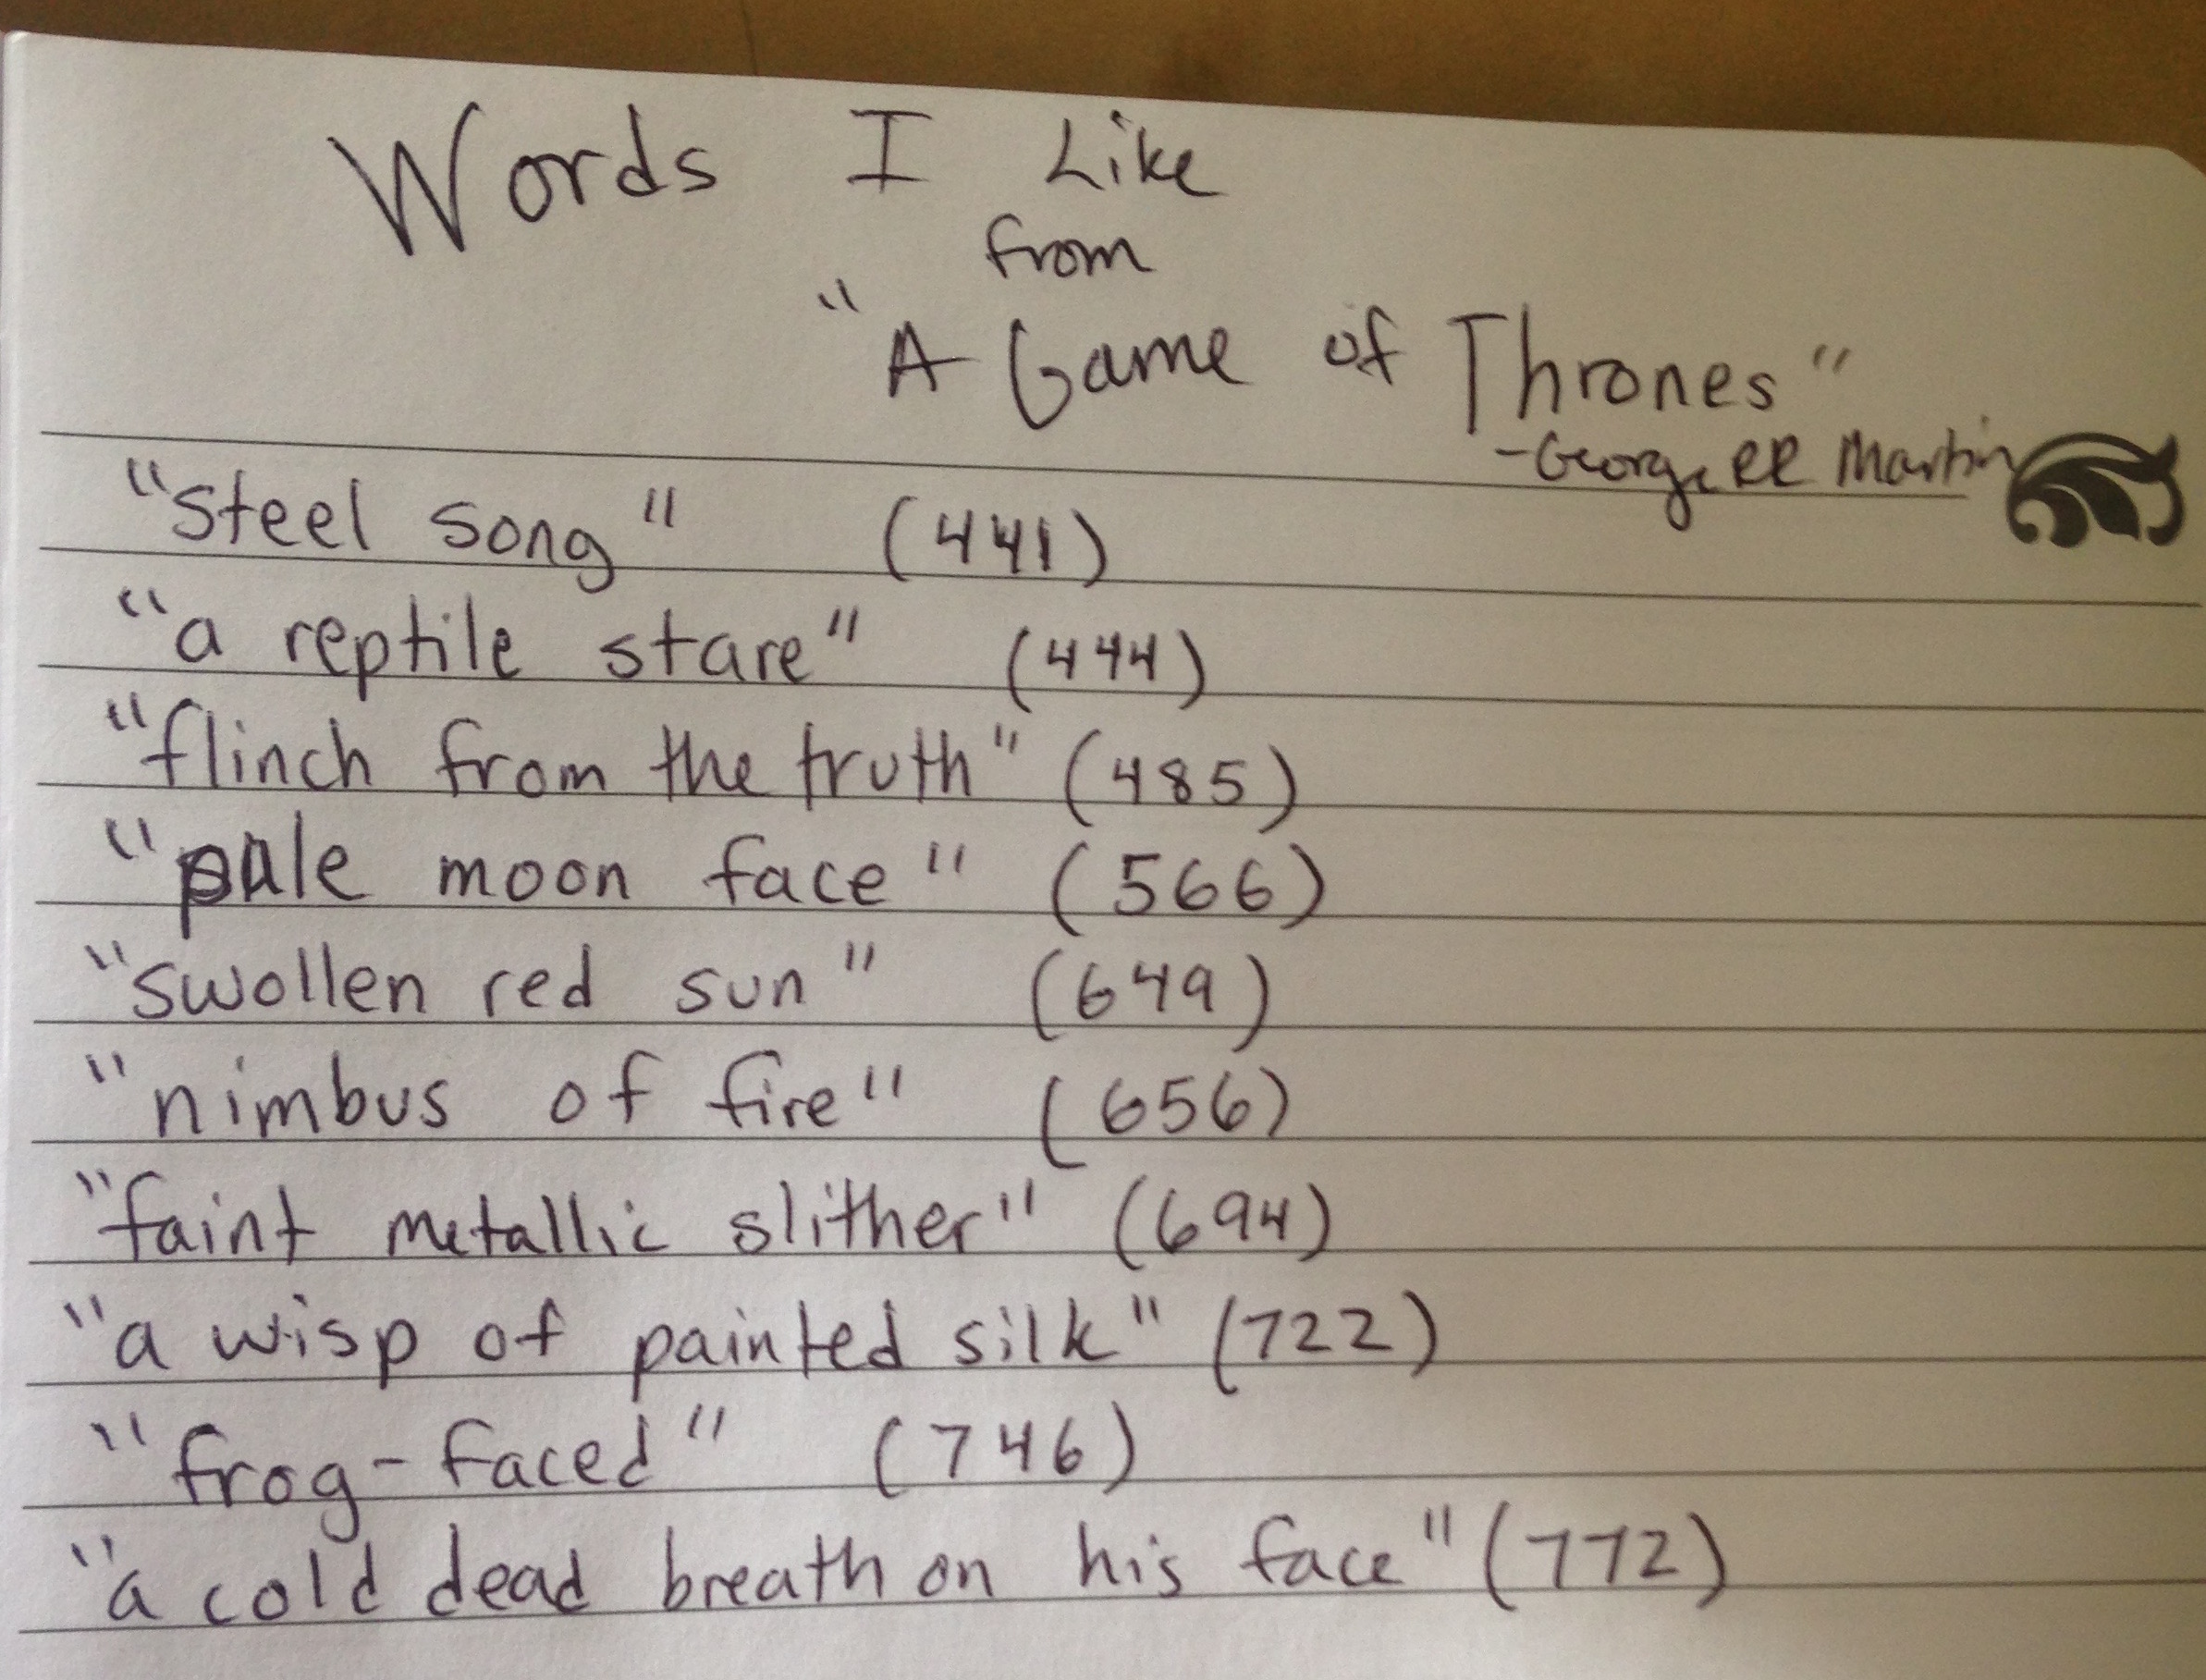 Words I Like
from
"A Game of Thrones"
-George RR Martin
"steel song" (441)
"a reptile stare" (444)
"flinch from the truth" (485)
"pale moon face" (566)
"swollen red sun" (649)
"nimbus of fire" (656)
"faint metallic slither" (694)
"a wisp of painted silk" (722)
"frog-faced" (746)
"a cold dead breath on his face" (772)